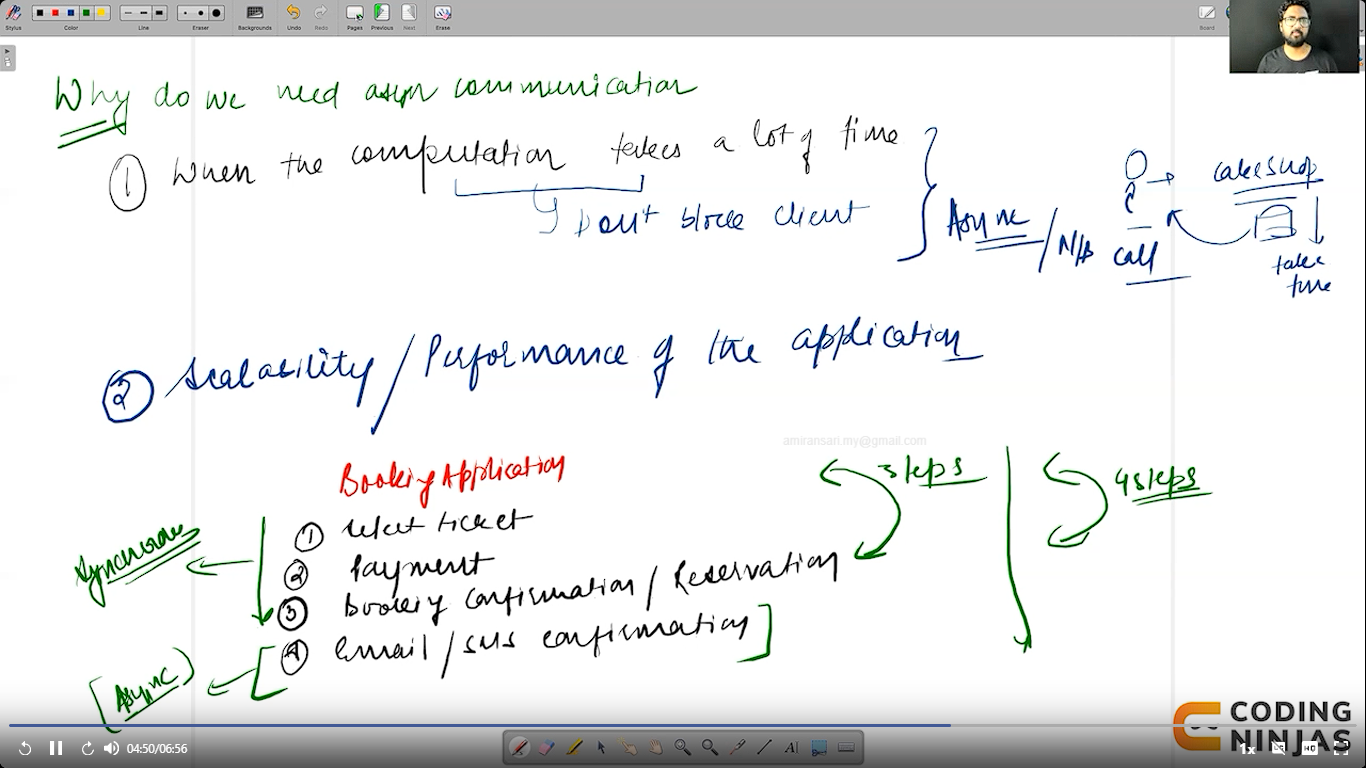 Stylus
Color
Line
Eraser
Backgrounds
Undo
Redo
Pages
Previous
Next
Erase
Board
Why do we need asyn communication
① When the computation takes a lot of time
Don't block client
Async / N/B call
cake shop
take
time
② Scalability / Performance of the application
amiransari.my@gmail.com
Booking Application
3 steps
4 steps
① select ticket
Synchronous
② Payment
③ Booking confirmation / Reservation
④ Email / SMS confirmation
[Async]
CODING
NINJAS
04:50/06:56
1x
HD